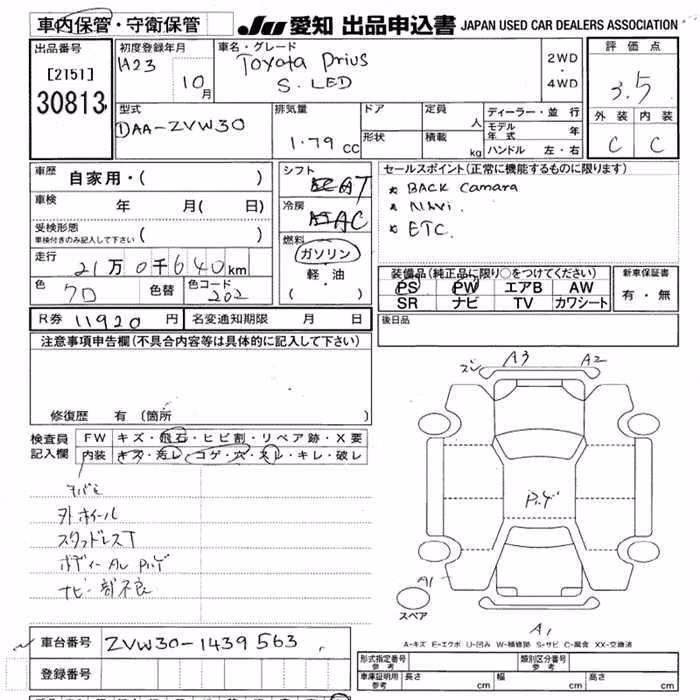 車内保管・守衛保管
JU 愛知 出品申込書 JAPAN USED CAR DEALERS ASSOCIATION
出品番号
[2T51]
30813
初度登録年月
H23
10月
車名・グレード
Toyota Prius
S. LED
2WD
・
4WD
評価点
3.5
外装 内装
C C
型式
①AA-ZVW30
排気量
1.79 cc
ドア
形状
定員
人
積載
kg
ディーラー・並行
モデル年式 年
ハンドル 左・右
車歴 自家用・( )
車検 年 月( 日)
受検形態
車検付きのみ記入して下さい ( )
走行
21万0千640km
色
クロ
色替
色コード
202
シフト
AT
冷房
AC
燃料
ガソリン
軽・油
( ・ )
セールスポイント(正常に機能するものに限ります)
* BACK Camara
* NAVi.
* ETC.
装備品(純正品に限り○をつけてください)
PS PW エアB AW
SR ナビ TV カワシート
新車保証書
有・無
R券 11920 円 名変通知期限 月 日
後日品
注意事項申告欄(不具合内容等は具体的に記入して下さい)
修復歴 有 (箇所 )
検査員
記入欄
FW キズ・飛石・ヒビ割・リペア跡・X要
内装 キズ・汚レ・コゲ・穴・スレ・キレ・破レ
外ホイール
スタッドレスT
ナビ一部不良
A3 A2
A1
スペア
A1
A-キズ E-エクボ U-凹み W-補修跡 S-サビ C-腐食 XX-交換済
車台番号 ZVW30-1439563
登録番号
形式指定番号
参考
類別区分番号
参考
車庫証明用
参考
長さ cm 幅 cm 高さ cm